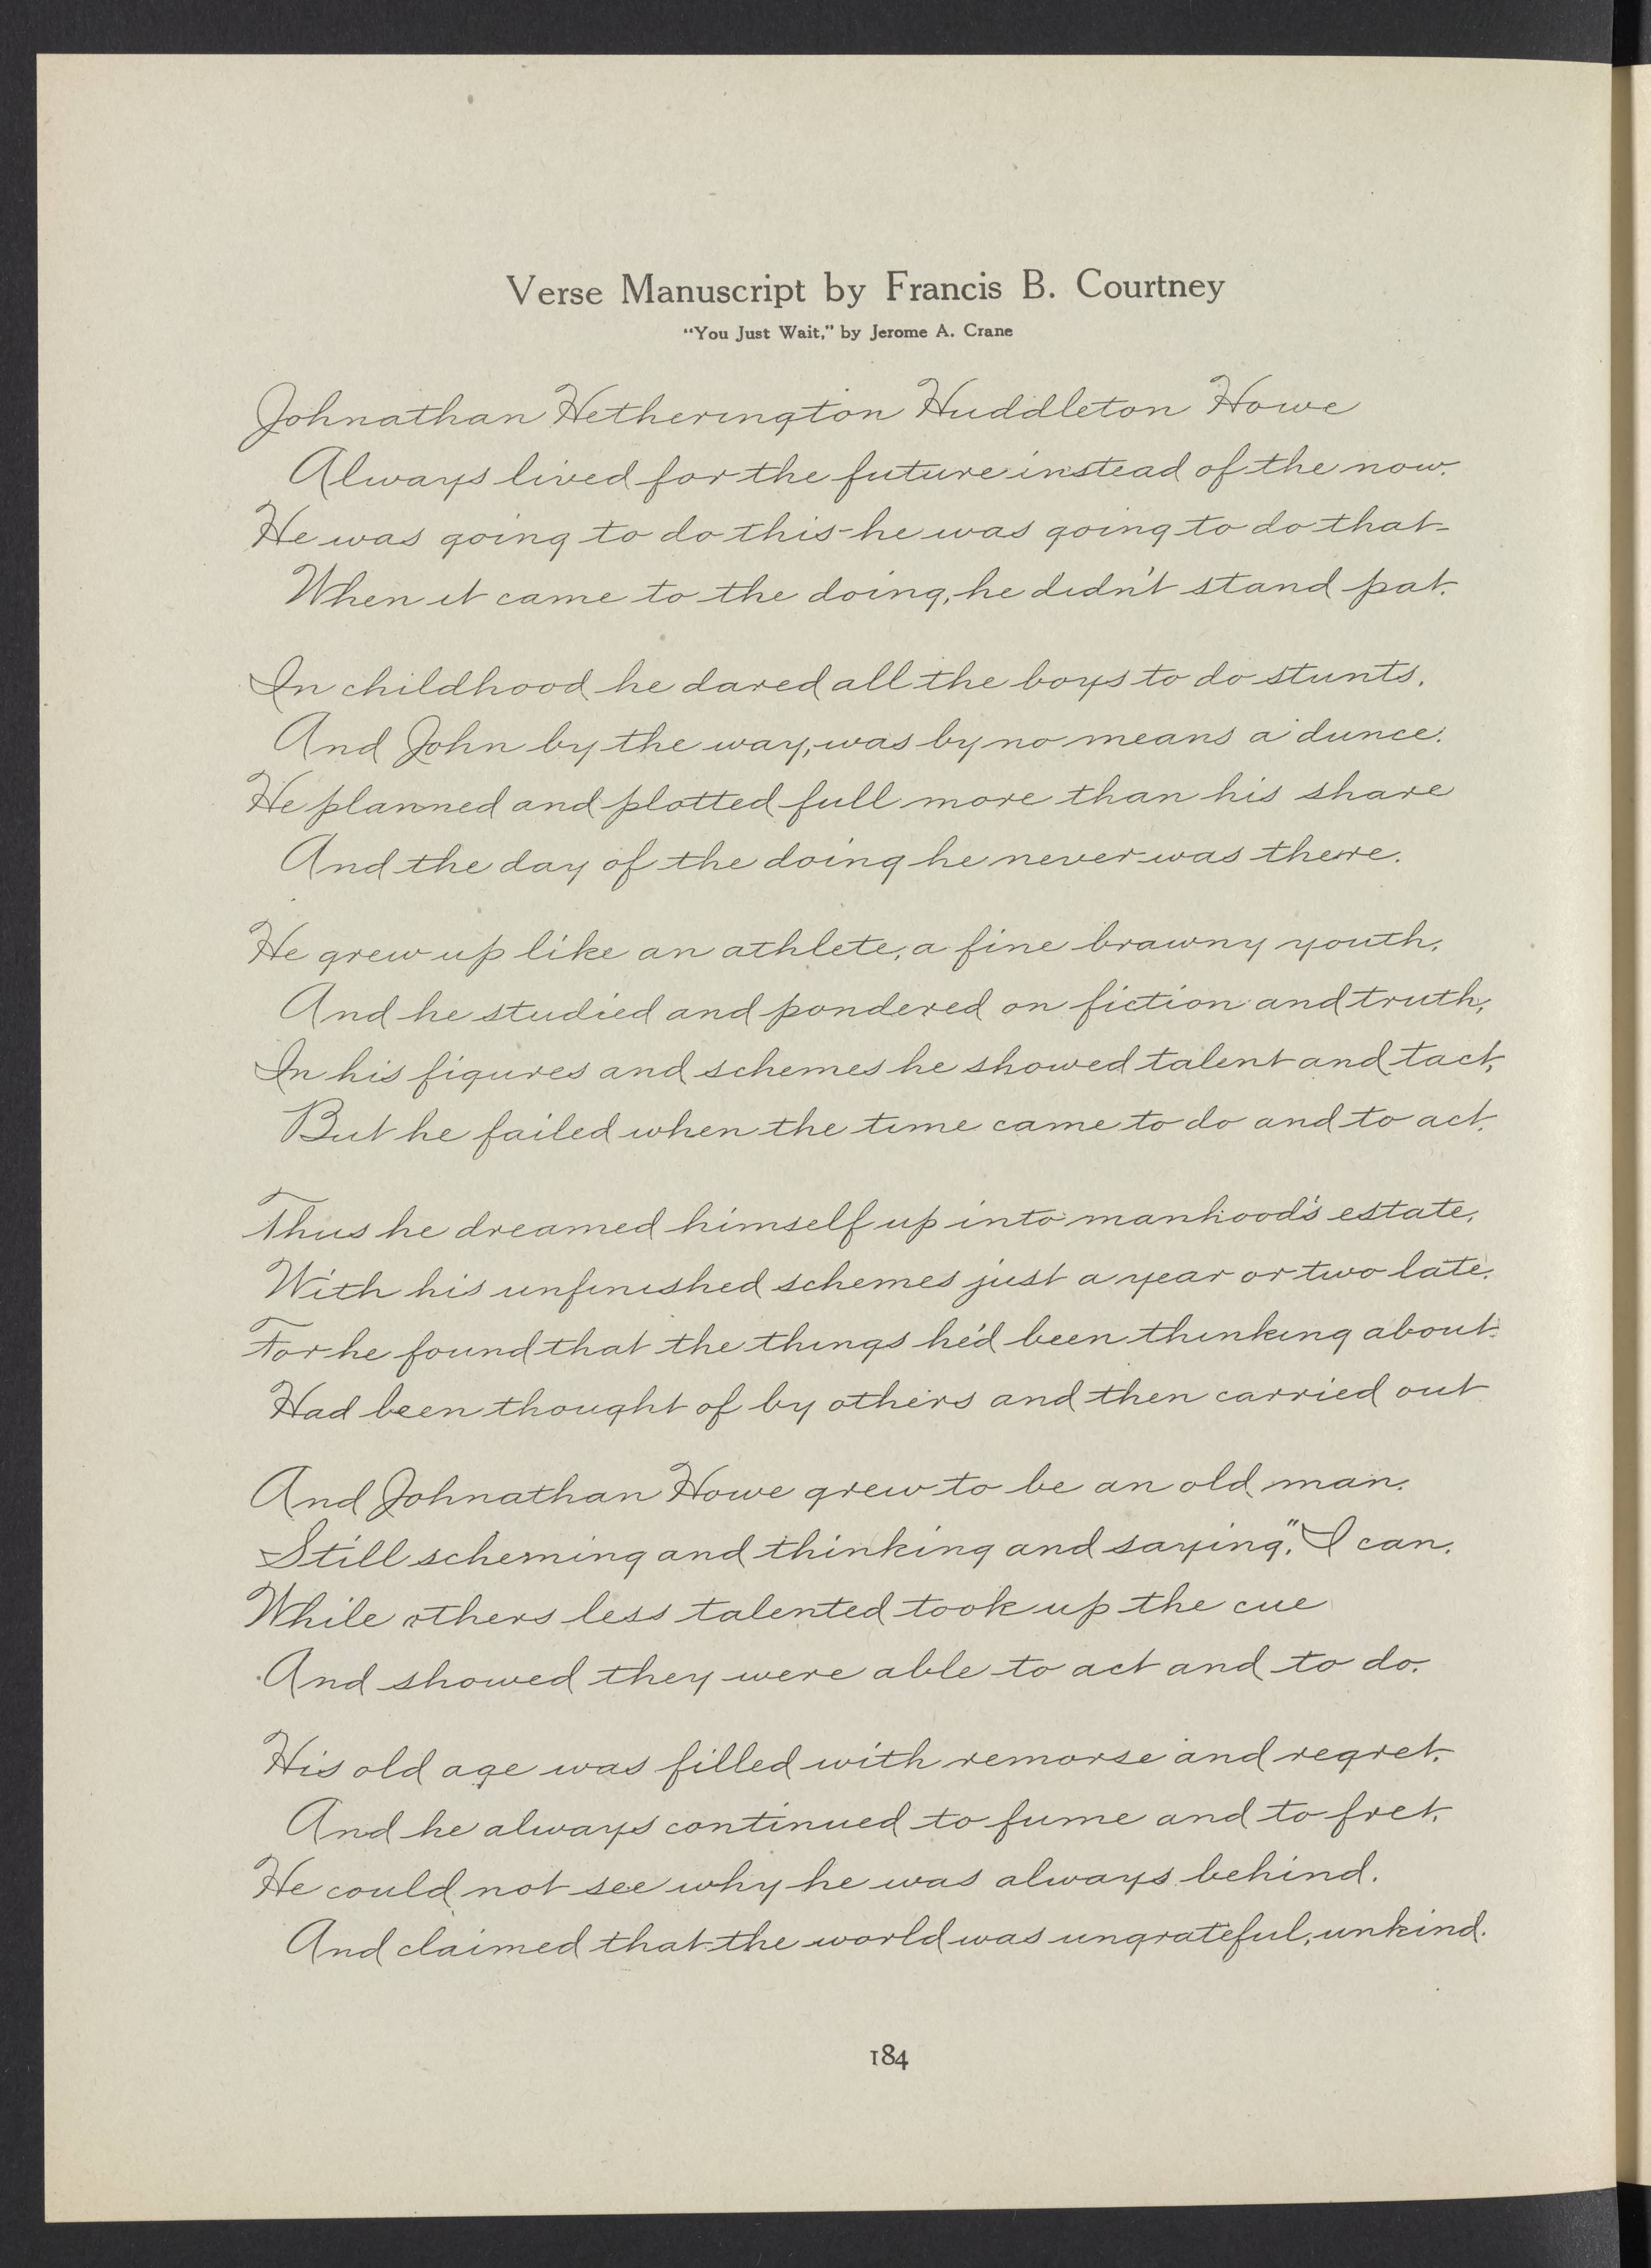 Verse Manuscript by Francis B. Courtney
"You Just Wait," by Jerome A. Crane
Johnathan Hetherington Huddleton Howe
Always lived for the future instead of the now.
He was going to do this-he was going to do that-
When it came to the doing, he didn't stand pat.
In childhood he dared all the boys to do stunts,
And John by the way, was by no means a dunce.
He planned and plotted full more than his share
And the day of the doing he never was there.
He grew up like an athlete, a fine brawny youth,
And he studied and pondered on fiction and truth,
In his figures and schemes he showed talent and tact,
But he failed when the time came to do and to act.
Thus he dreamed himself up into manhood's estate,
With his unfinished schemes just a year or two late.
For he found that the things he'd been thinking about
Had been thought of by others and then carried out
And Johnathan Howe grew to be an old man.
Still scheming and thinking and saying, "I can.
While others less talented took up the cue
And showed they were able to act and to do.
His old age was filled with remorse and regret,
And he always continued to fume and to fret.
He could not see why he was always behind.
And claimed that the world was ungrateful, unkind.
184